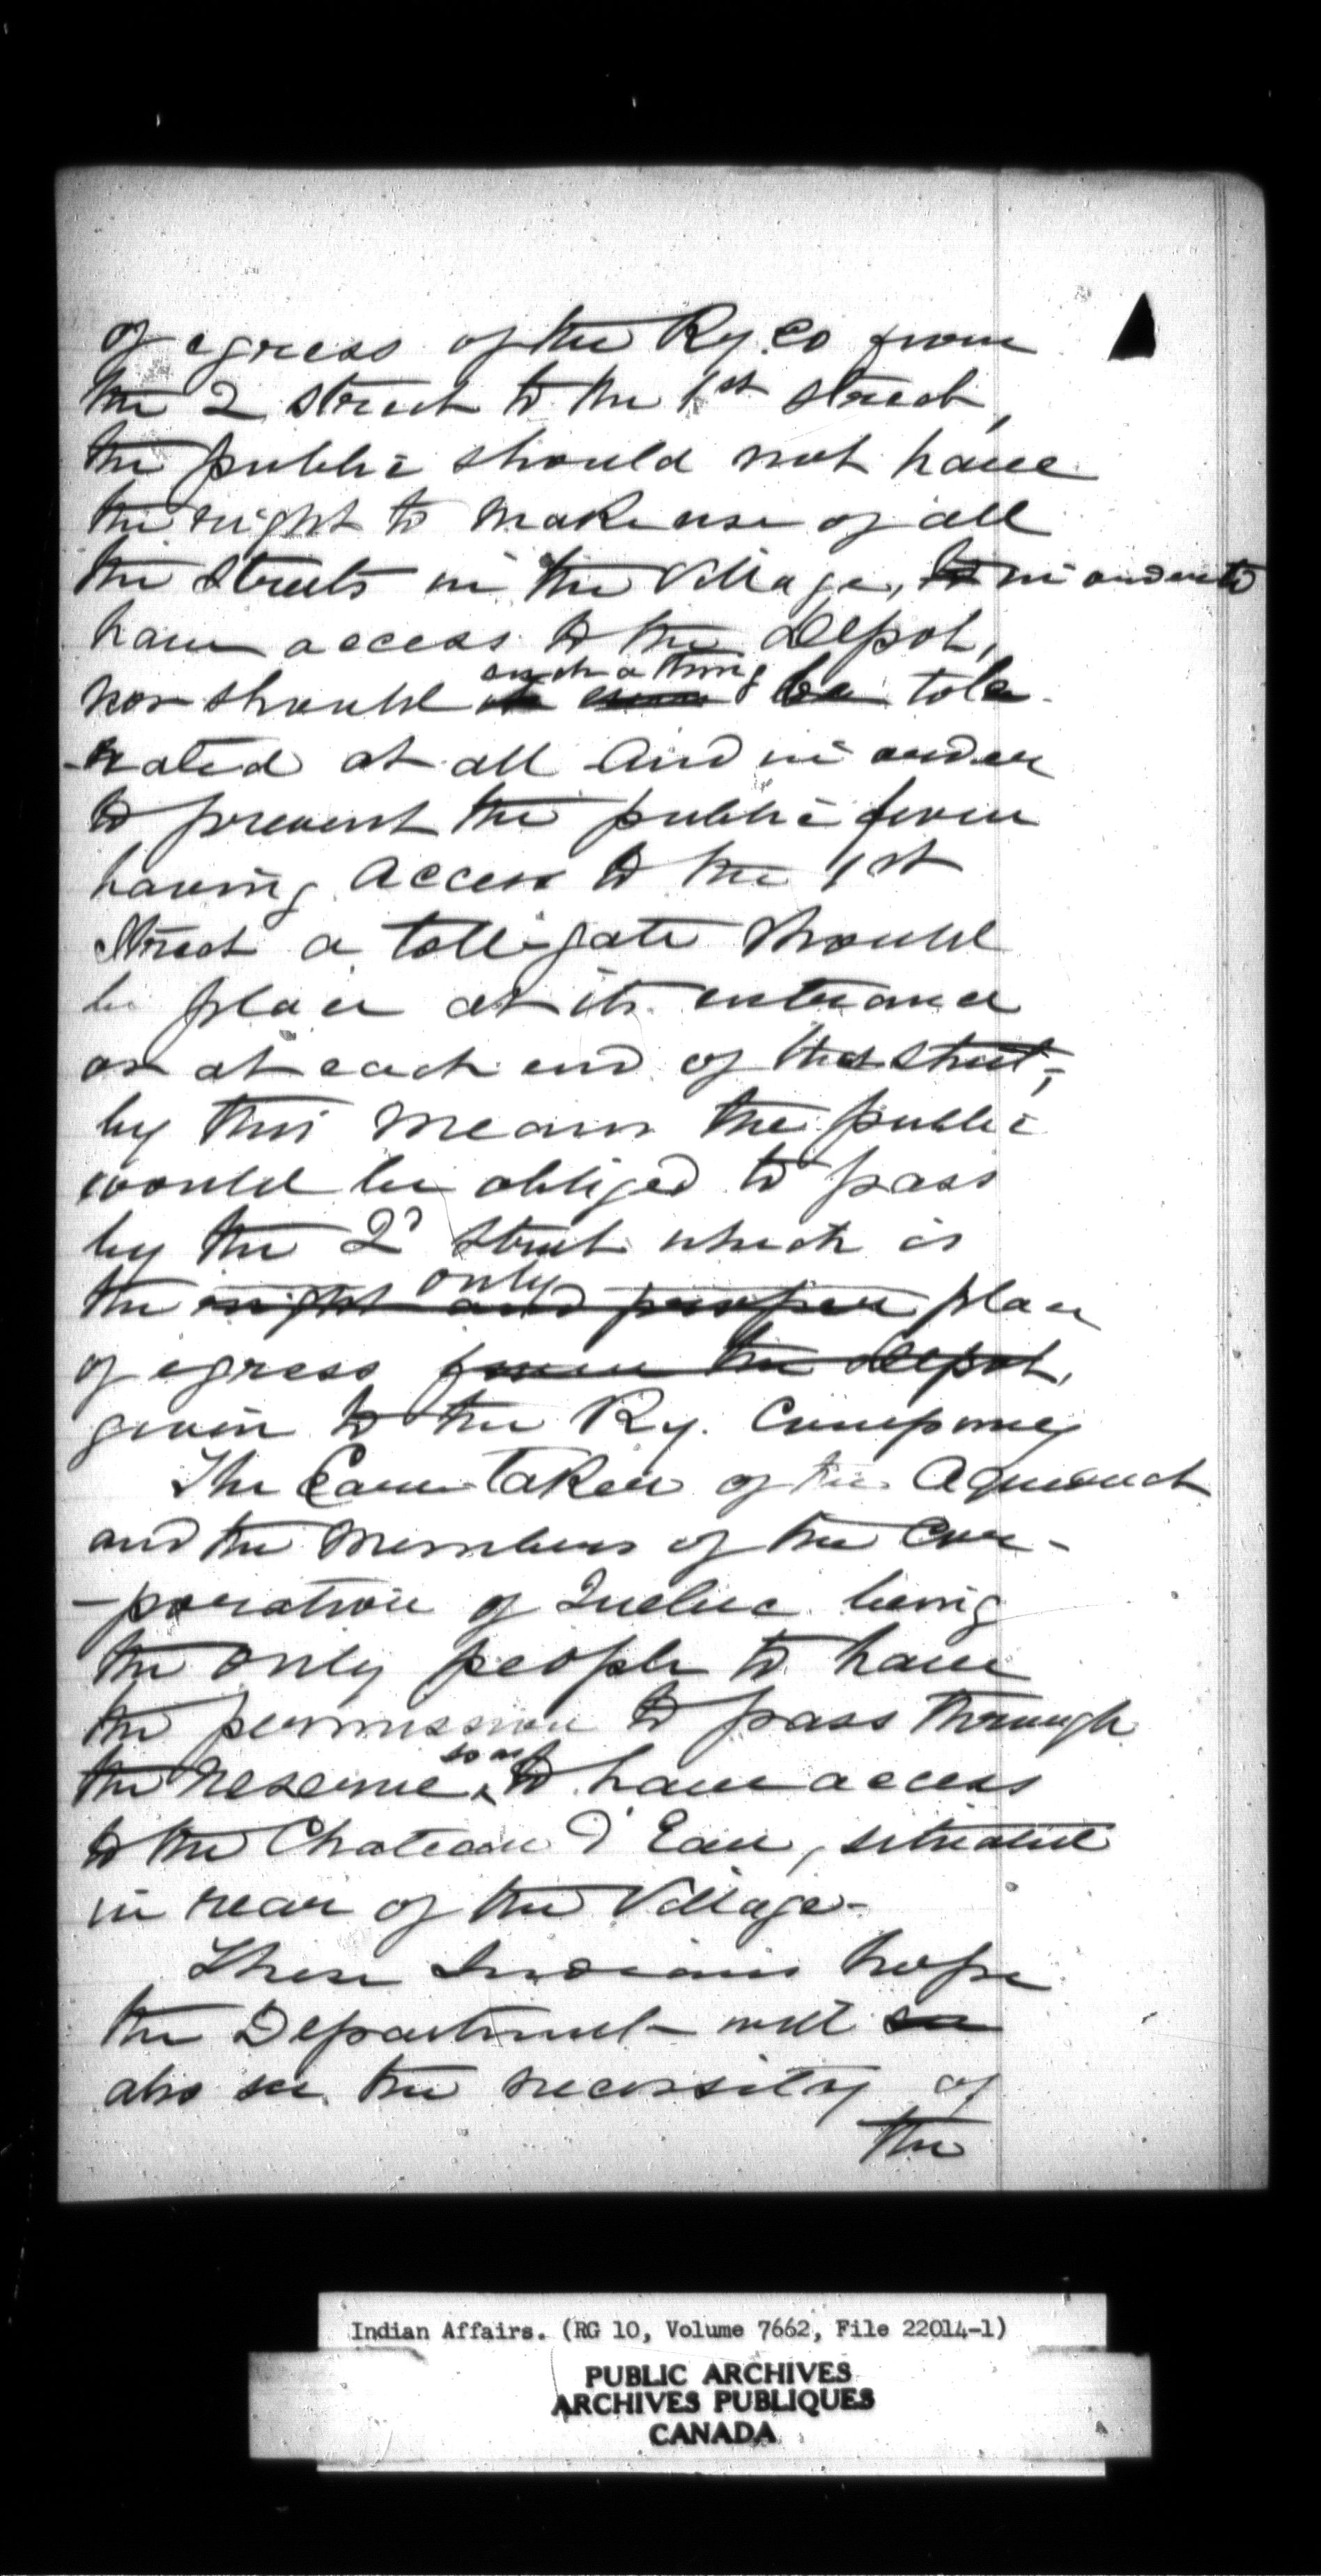 of egress of the Ry. Co from
the 2 street to the 1st street,
the public should not have
the right to make use of all
the streets in the Village, to in order to
have access to the Depot,
such a thing
nor should it even be tole-
-rated at all and in order
to prevent the public from
having access to the 1st
Street a toll-gate should
be place at its entrance
or at each end of that street;
by this means the public
would be obliged to pass
by the 2d Street which is
only
the right and proper place
of egress from the Depot,
given to the Ry. Company
The Care-Taker of the Aqueduct
and the Members of the Cor-
-poration of Quebec being
the only people to have
the permission to pass through
so as
the reserve to have access
to the Chateau d'Eau, situated
in rear of the Village-
These Indians hope
the Department will
also see the necessity of
the
Indian Affairs. (RG 10, Volume 7662, File 22014-1)
PUBLIC ARCHIVES
ARCHIVES PUBLIQUES
CANADA